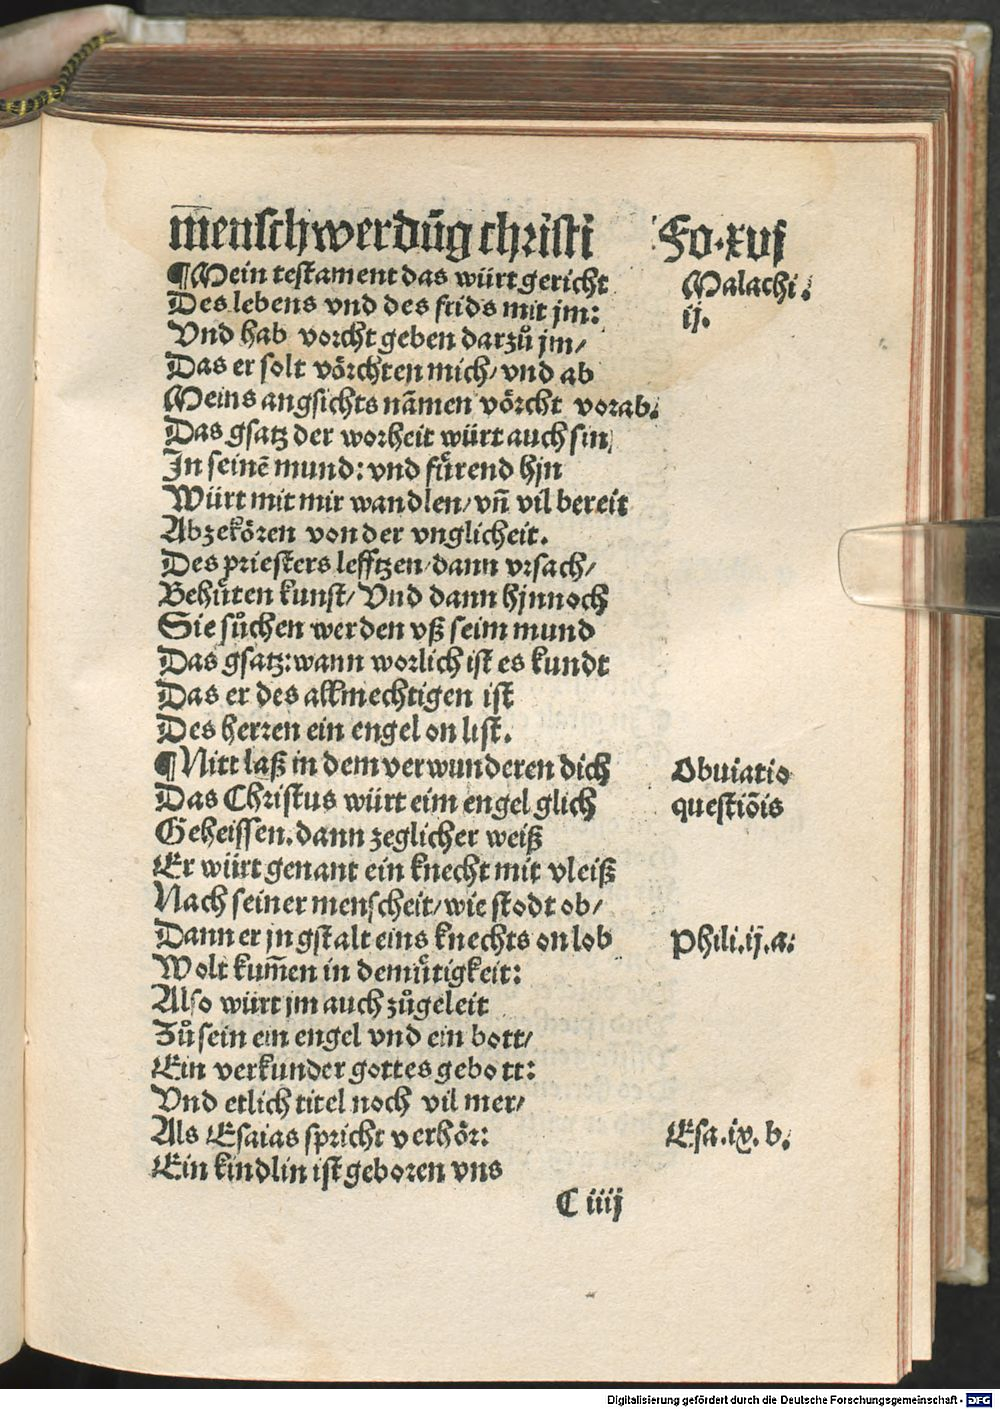 menschwerdūg christi Fo.xvj
¶Mein testament das würt gericht Malachi.
Des lebens vnd des frids mit jm: ij.
Vnd hab vorcht geben darzů jm/
Das er solt vörchten mich/ vnd ab
Meins angsichts nāmen vörcht vorab.
Das gsatz der worheit würt auch sin/
In seinē mund: vnd fürend hjn
Würt mit mir wandlen/ vn̄ vil bereit
Abzekören von der vnglicheit.
Des priesters lefftzen/ dann vrsach/
Behüten kunst/ Vnd dann hjnnoch
Sie sůchen werden vß seim mund
Das gsatz: wann worlich ist es kundt
Das er des allmechtigen ist
Des herren ein engel on list.
¶Nitt laß in dem verwunderen dich Obuiatio
Das Christus würt eim engel glich questiōis
Geheissen. dann zeglicher weiß
Er würt genant ein knecht mit vleiß
Nach seiner menscheit/ wie stodt ob/
Dann er jn gstalt eins knechts on lob Phili.ij.a.
Wolt kum̄en in demütigkeit:
Also würt jm auch zůgeleit
Zů sein ein engel vnd ein bott/
Ein verkunder gottes gebott:
Vnd etlich titel noch vil mer/
Als Esaias spricht verhör: Esa.ix.b.
Ein kindlin ist geboren vns
C iiij
Digitalisierung gefördert durch die Deutsche Forschungsgemeinschaft - DFG